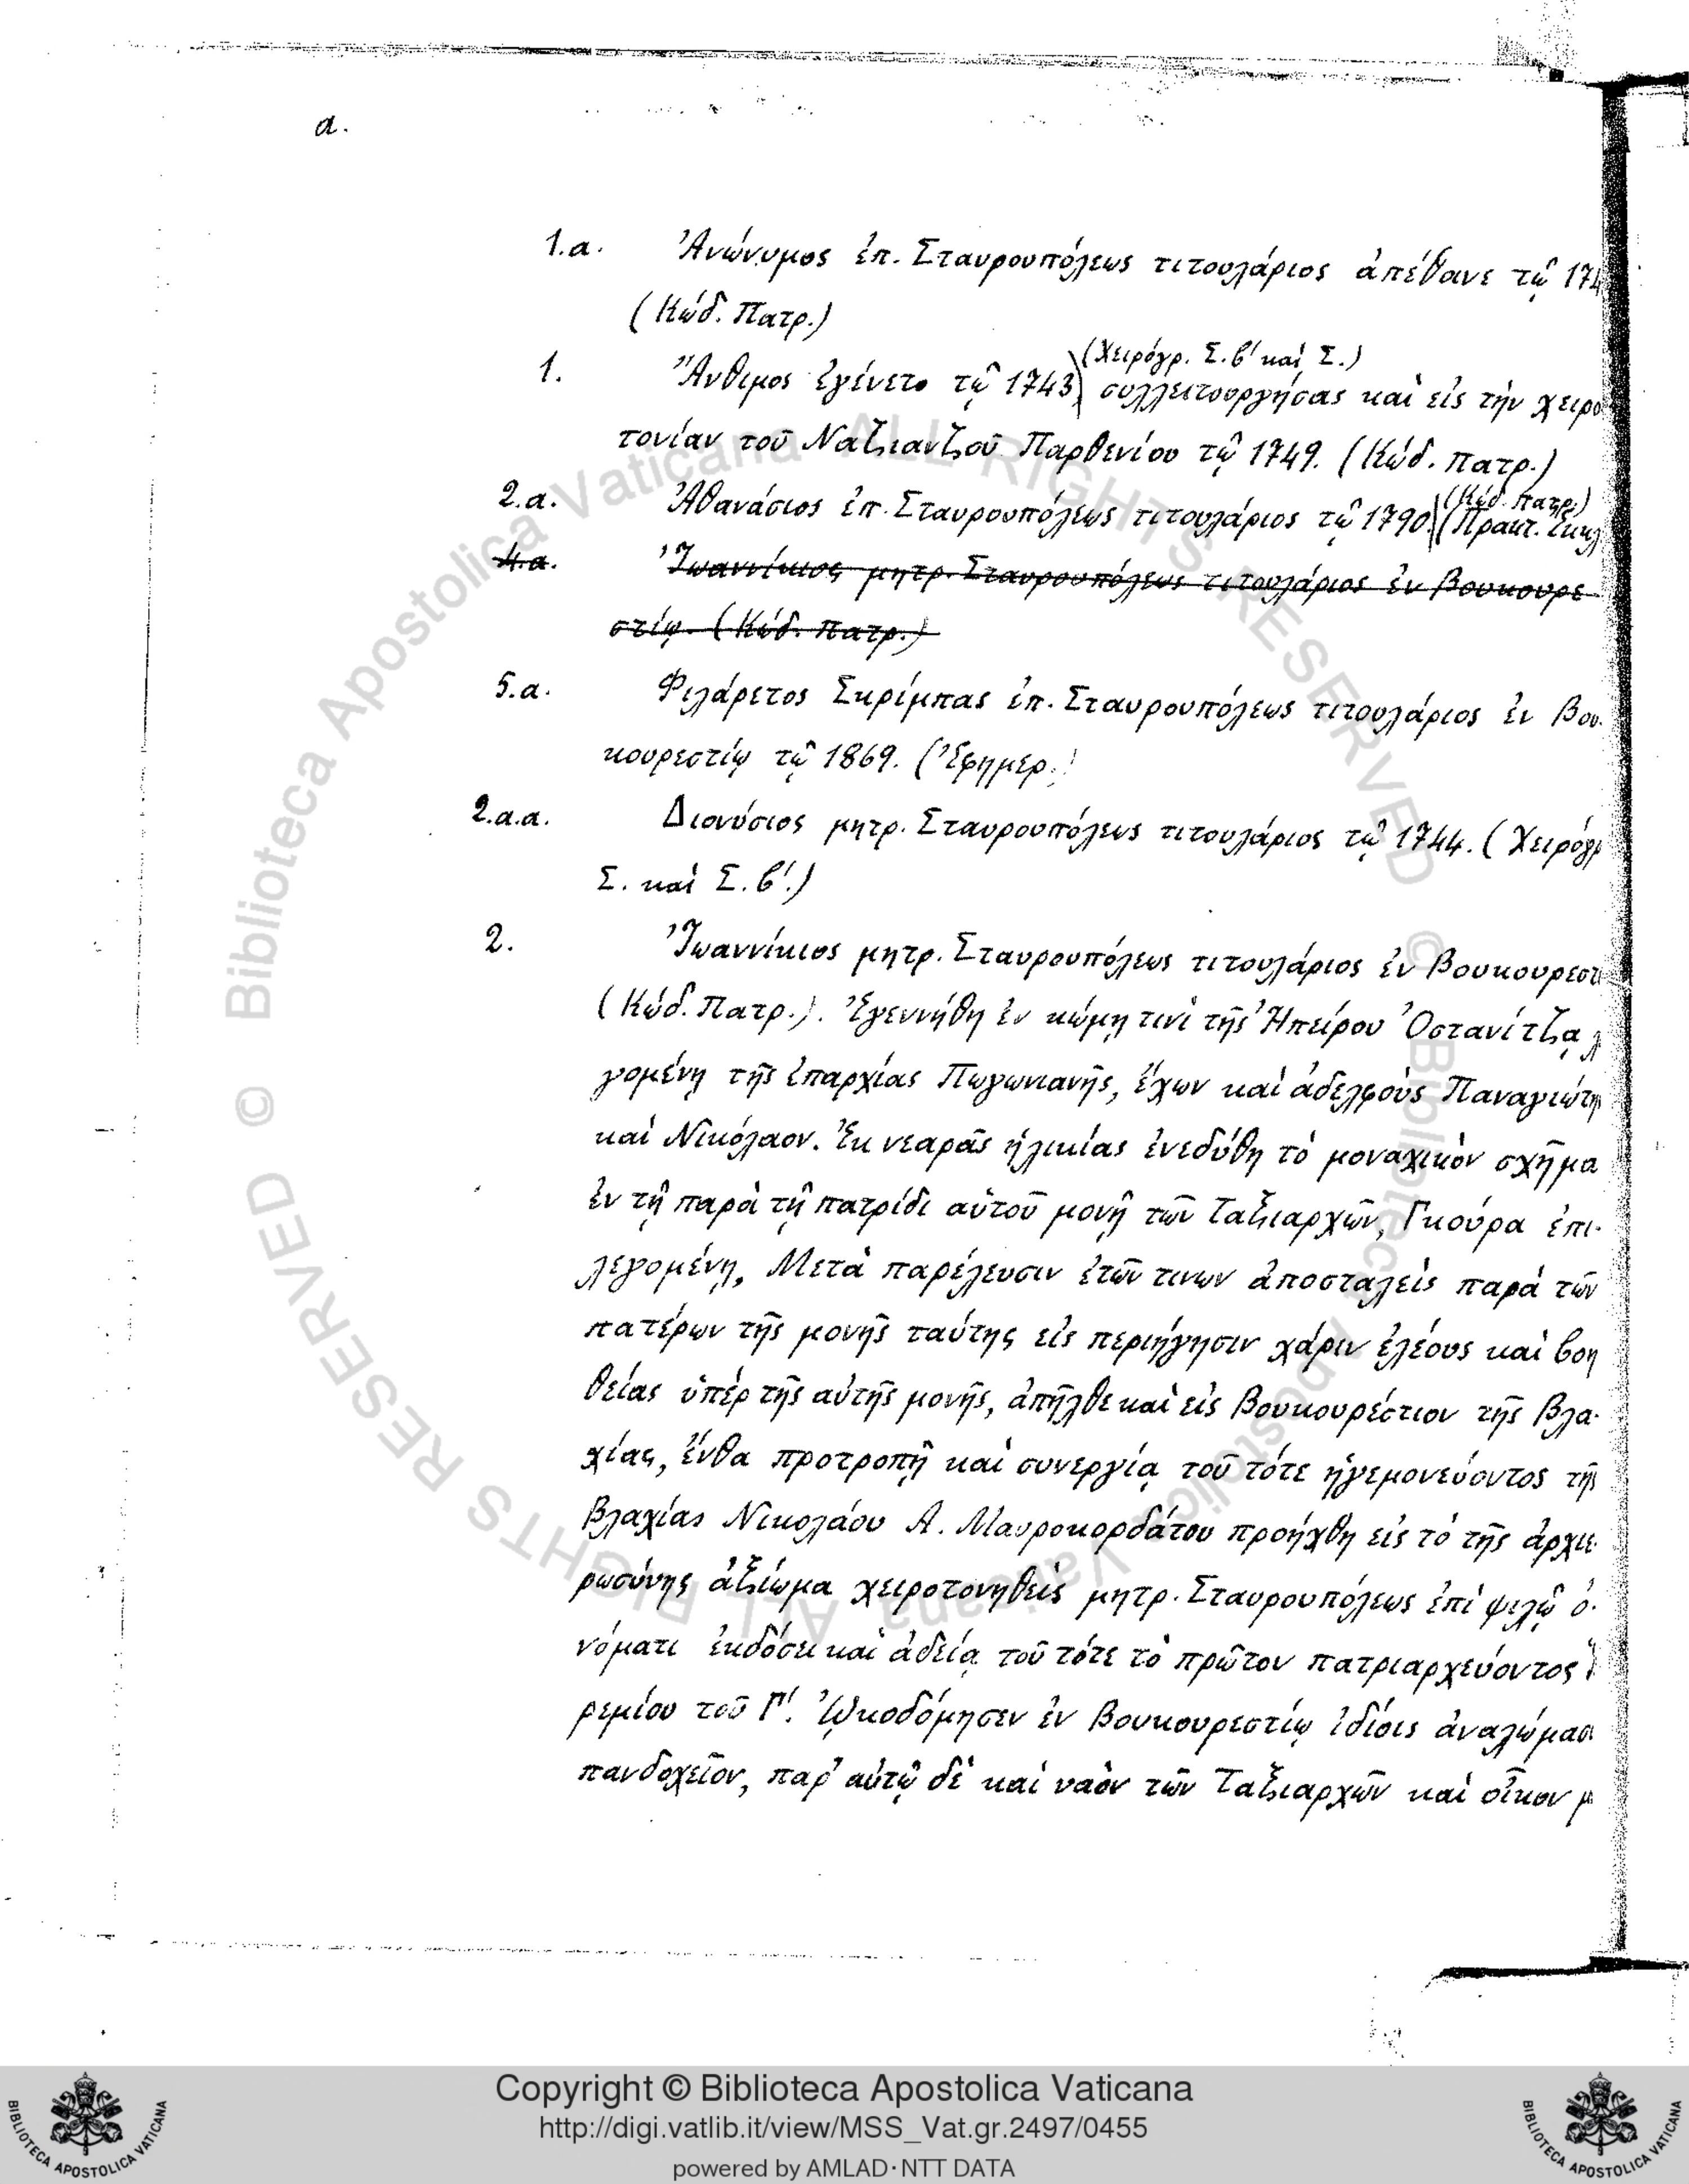 α.
1.α. Ἀνώνυμος ἐπ. Σταυρουπόλεως τιτουλάριος ἀπέθανε τῷ 174
(Κώδ. Πατρ.)
(Χειρόγρ. Σ. β' καὶ Σ.)
1. Ἄνθιμος ἐγένετο τῷ 1743 συλλειτουργήσας καὶ εἰς τὴν χειρο
τονίαν τοῦ Ναζιανζοῦ Παρθενίου τῷ 1749. (Κώδ. Πατρ.)
(Κώδ. Πατρ.)
2.α. Ἀθανάσιος ἐπ. Σταυρουπόλεως τιτουλάριος τῷ 1790. (Πρακτ. Ἐκκλ
4.α. Ἰωαννίκιος μητρ. Σταυρουπόλεως τιτουλάριος ἐν Βουκουρε
στίῳ. (Κώδ. Πατρ.)
5.α. Φιλάρετος Σκρίμπας ἐπ. Σταυρουπόλεως τιτουλάριος ἐν Βου
κουρεστίῳ τῷ 1869. (Ἐφημερ.)
2.α.α. Διονύσιος μητρ. Σταυρουπόλεως τιτουλάριος τῷ 1744. (Χειρόγρ
Σ. καὶ Σ. β'.)
2. Ἰωαννίκιος μητρ. Σταυρουπόλεως τιτουλάριος ἐν Βουκουρεστί
(Κώδ. Πατρ.). Ἐγεννήθη ἐν κώμῃ τινὶ τῆς Ἠπείρου Ὀστανίτζᾳ λ
γομένῃ τῆς ἐπαρχίας Πωγωνιανῆς, ἔχων καὶ ἀδελφοὺς Παναγιώτη
καὶ Νικόλαον. Ἐκ νεαρᾶς ἡλικίας ἐνεδύθη τὸ μοναχικὸν σχῆμα
ἐν τῇ παρὰ τῇ πατρίδι αὐτοῦ μονῇ τῶν Ταξιαρχῶν, Γκούρα ἐπι-
λεγομένῃ, Μετὰ παρέλευσιν ἐτῶν τινων ἀποσταλεὶς παρὰ τῶν
πατέρων τῆς μονῆς ταύτης εἰς περιήγησιν χάριν ἐλέους καὶ βοη
θείας ὑπὲρ τῆς αὐτῆς μονῆς, ἀπῆλθε καὶ εἰς Βουκουρέστιον τῆς Βλα-
χίας, ἔνθα προτροπῇ καὶ συνεργίᾳ τοῦ τότε ἡγεμονεύοντος τῆς
Βλαχίας Νικολάου Α. Μαυροκορδάτου προήχθη εἰς τὸ τῆς ἀρχιε-
ρωσύνης ἀξίωμα χειροτονηθεὶς μητρ. Σταυρουπόλεως ἐπὶ ψιλῷ ὀ-
νόματι ἐκδόσει καὶ ἀδείᾳ τοῦ τότε τὸ πρῶτον πατριαρχεύοντος Ἱ
ρεμίου τοῦ Γ'. ᾨκοδόμησεν ἐν Βουκουρεστίῳ ἰδίοις ἀναλώμασι
πανδοχεῖον, παρ' αὐτῷ δὲ καὶ ναὸν τῶν Ταξιαρχῶν καὶ οἶκον μ
© Biblioteca Apostolica Vaticana ALL RIGHTS RESERVED © Biblioteca Apostolica Vaticana ALL RIGHTS RESERVED
Copyright © Biblioteca Apostolica Vaticana
http://digi.vatlib.it/view/MSS_Vat.gr.2497/0455
powered by AMLAD·NTT DATA
BIBLIOTECA APOSTOLICA VATICANA
BIBLIOTECA APOSTOLICA VATICANA